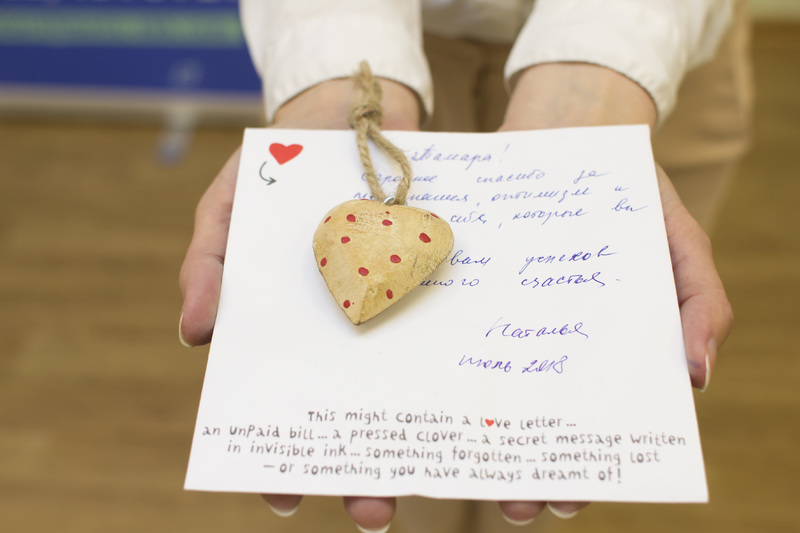 Тамара!
Огромное спасибо за
оптимизм и
себя, которые вы
вам успехов
счастья.
Наталья
июль 2018
This might contain a l♥ve letter...
an unpaid bill... a pressed clover... a secret message written
in invisible ink... something forgotten... something lost
— or something you have always dreamt of!